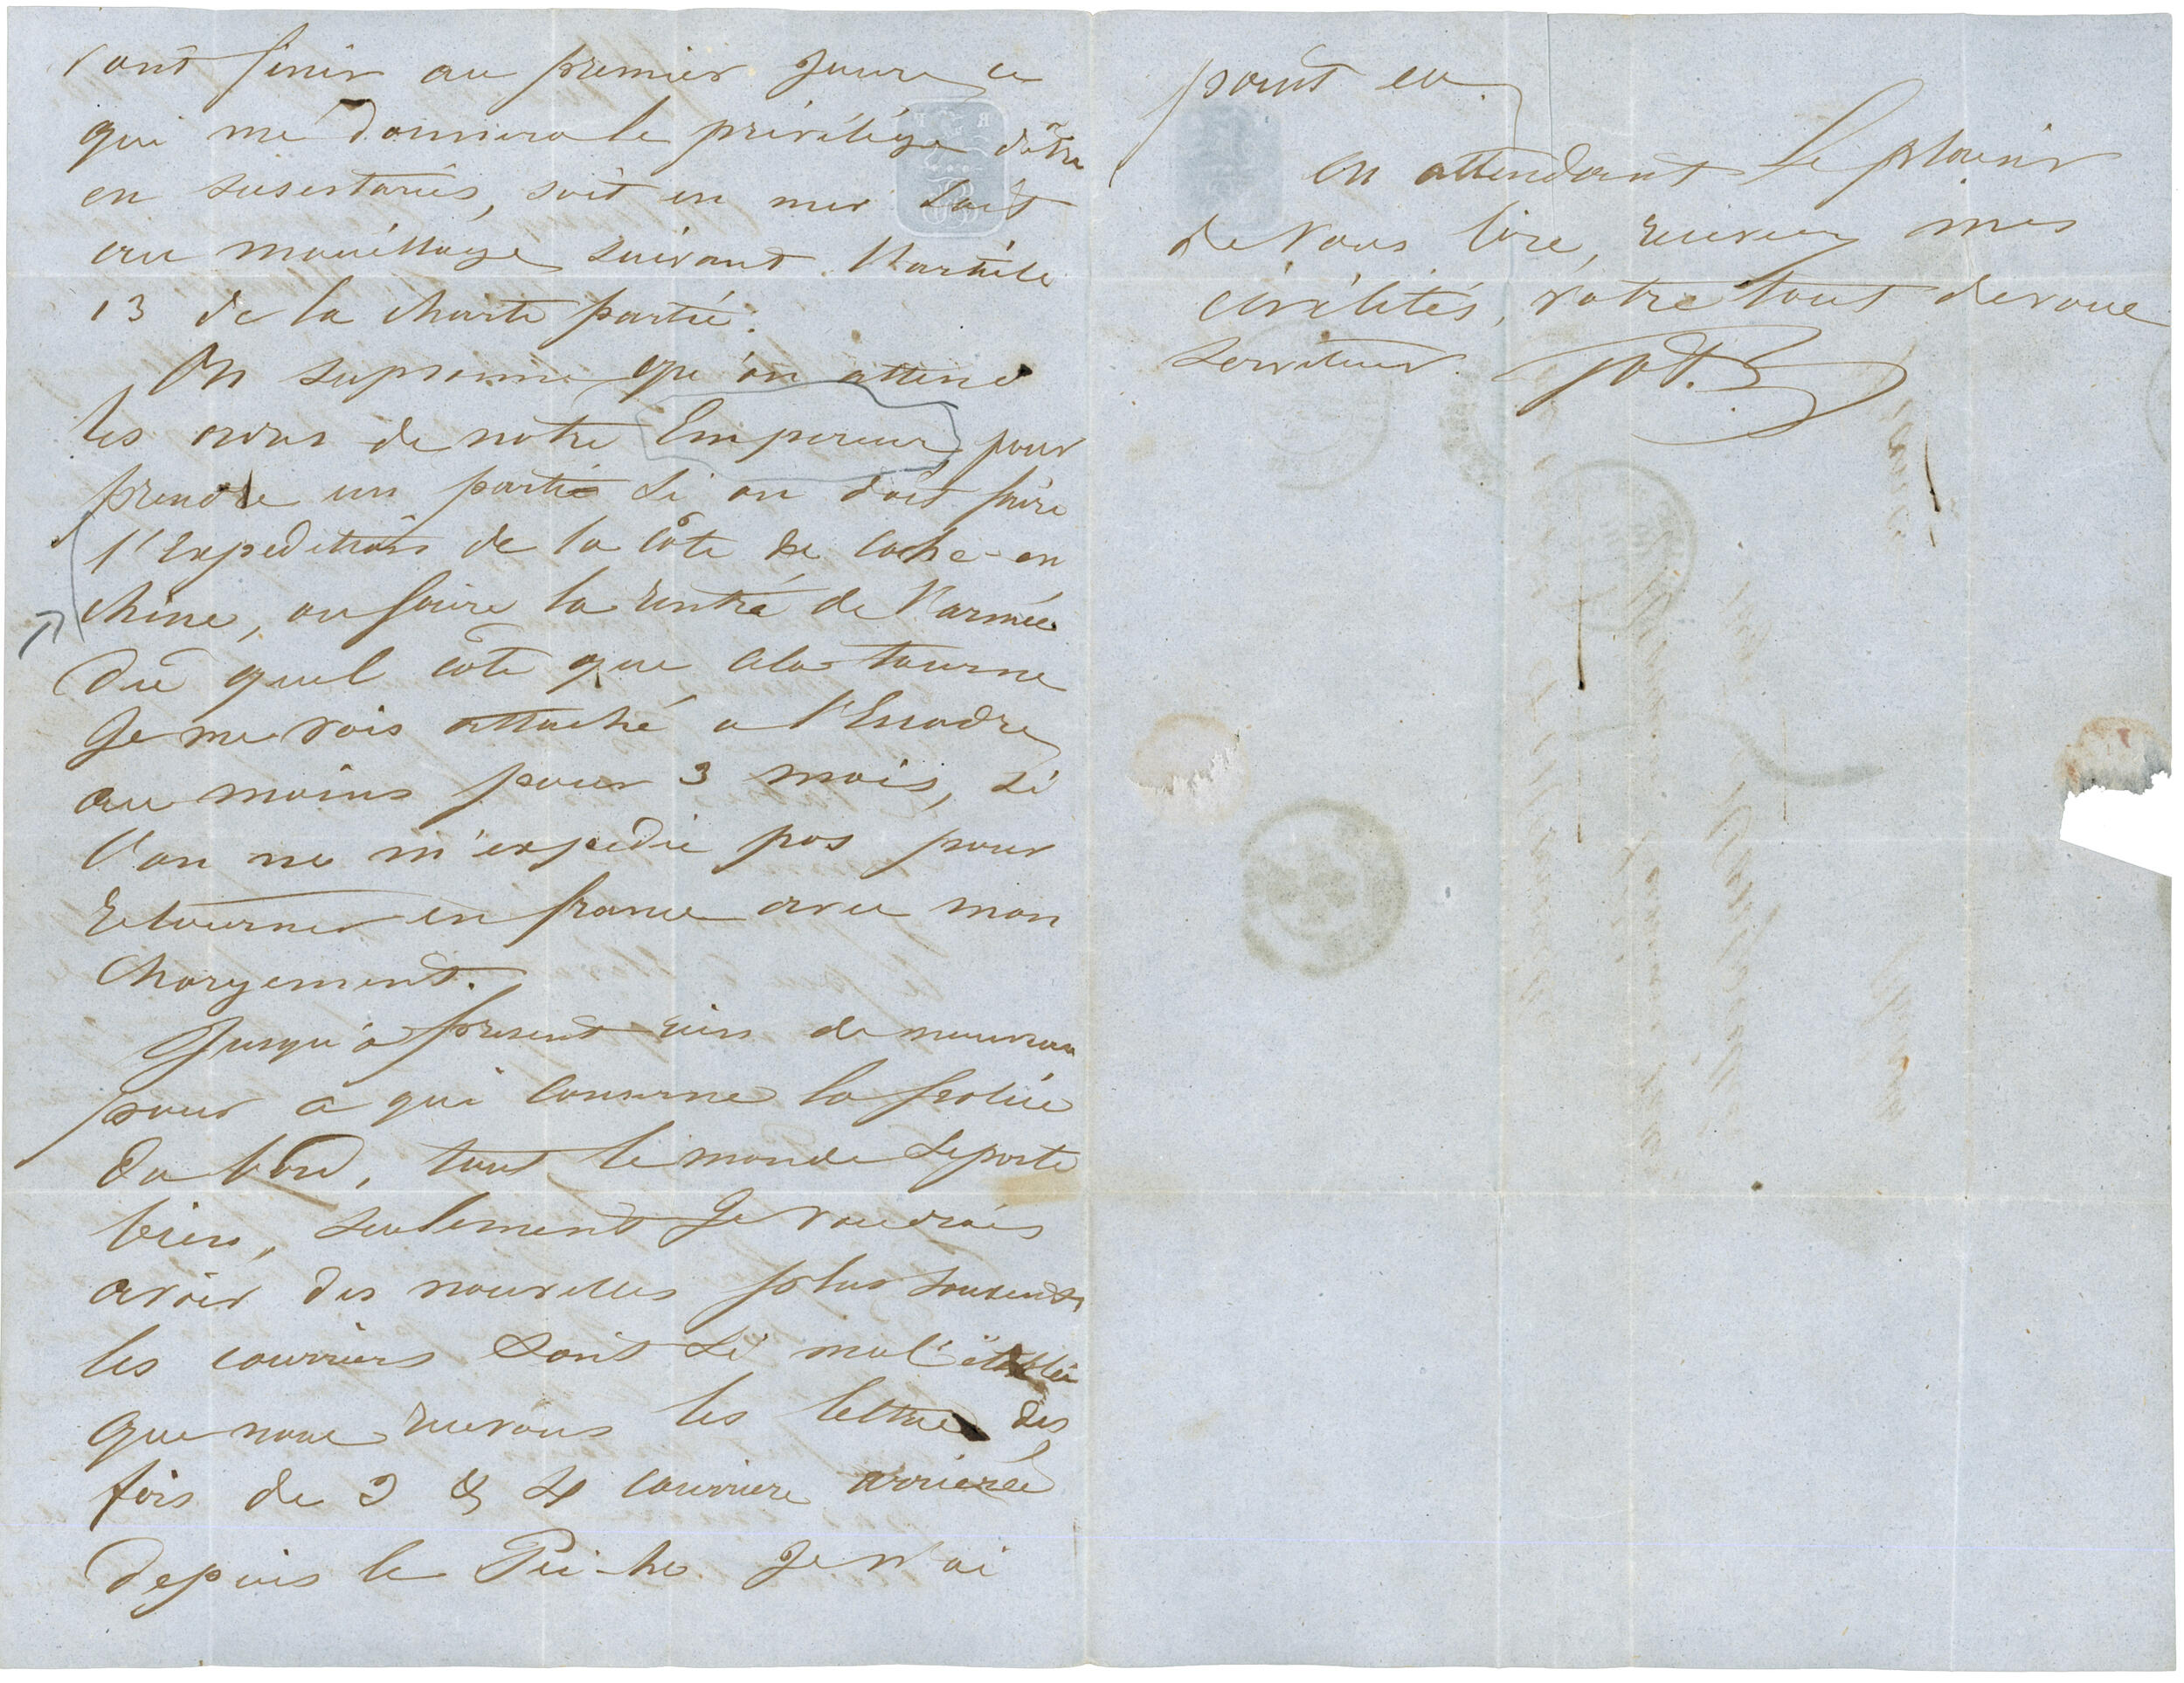 vont finir au premier Jours ce
qui me donnera le privilége d'être
en susestaries, soit en mer soit
au mouillage suivant l'artície
13 de la charte partie.
On suppronne que on attend
les ordres de notre Empereur pour
prendre un partie si on doit faire
l'Expedition de la Côte de Coche-en
chine, ou faire la rentré de l'armée
du quel coté que cela tourne
Je me vois attaché a l'Escadre
au moins pour 3 mois, si
l'on ne m'expedie pas pour
retourner en france avec mon
chargement.
Jusqu'a present rien de nouveau
pour ce qui conserne la police
du bord, tout le monde se porte
bien, seulement Je voudrais
avoir des nouvelles plus souvents
les courriers sont si mal établi
que nous recevons les lettres des
fois de 3 & 4 courriers arrieres
depuis le Pei-ho Je n'ai
point eu.
En attendant le plaisir
de vous lire, recevez mes
civilités, votre tout devoue
serviteur.